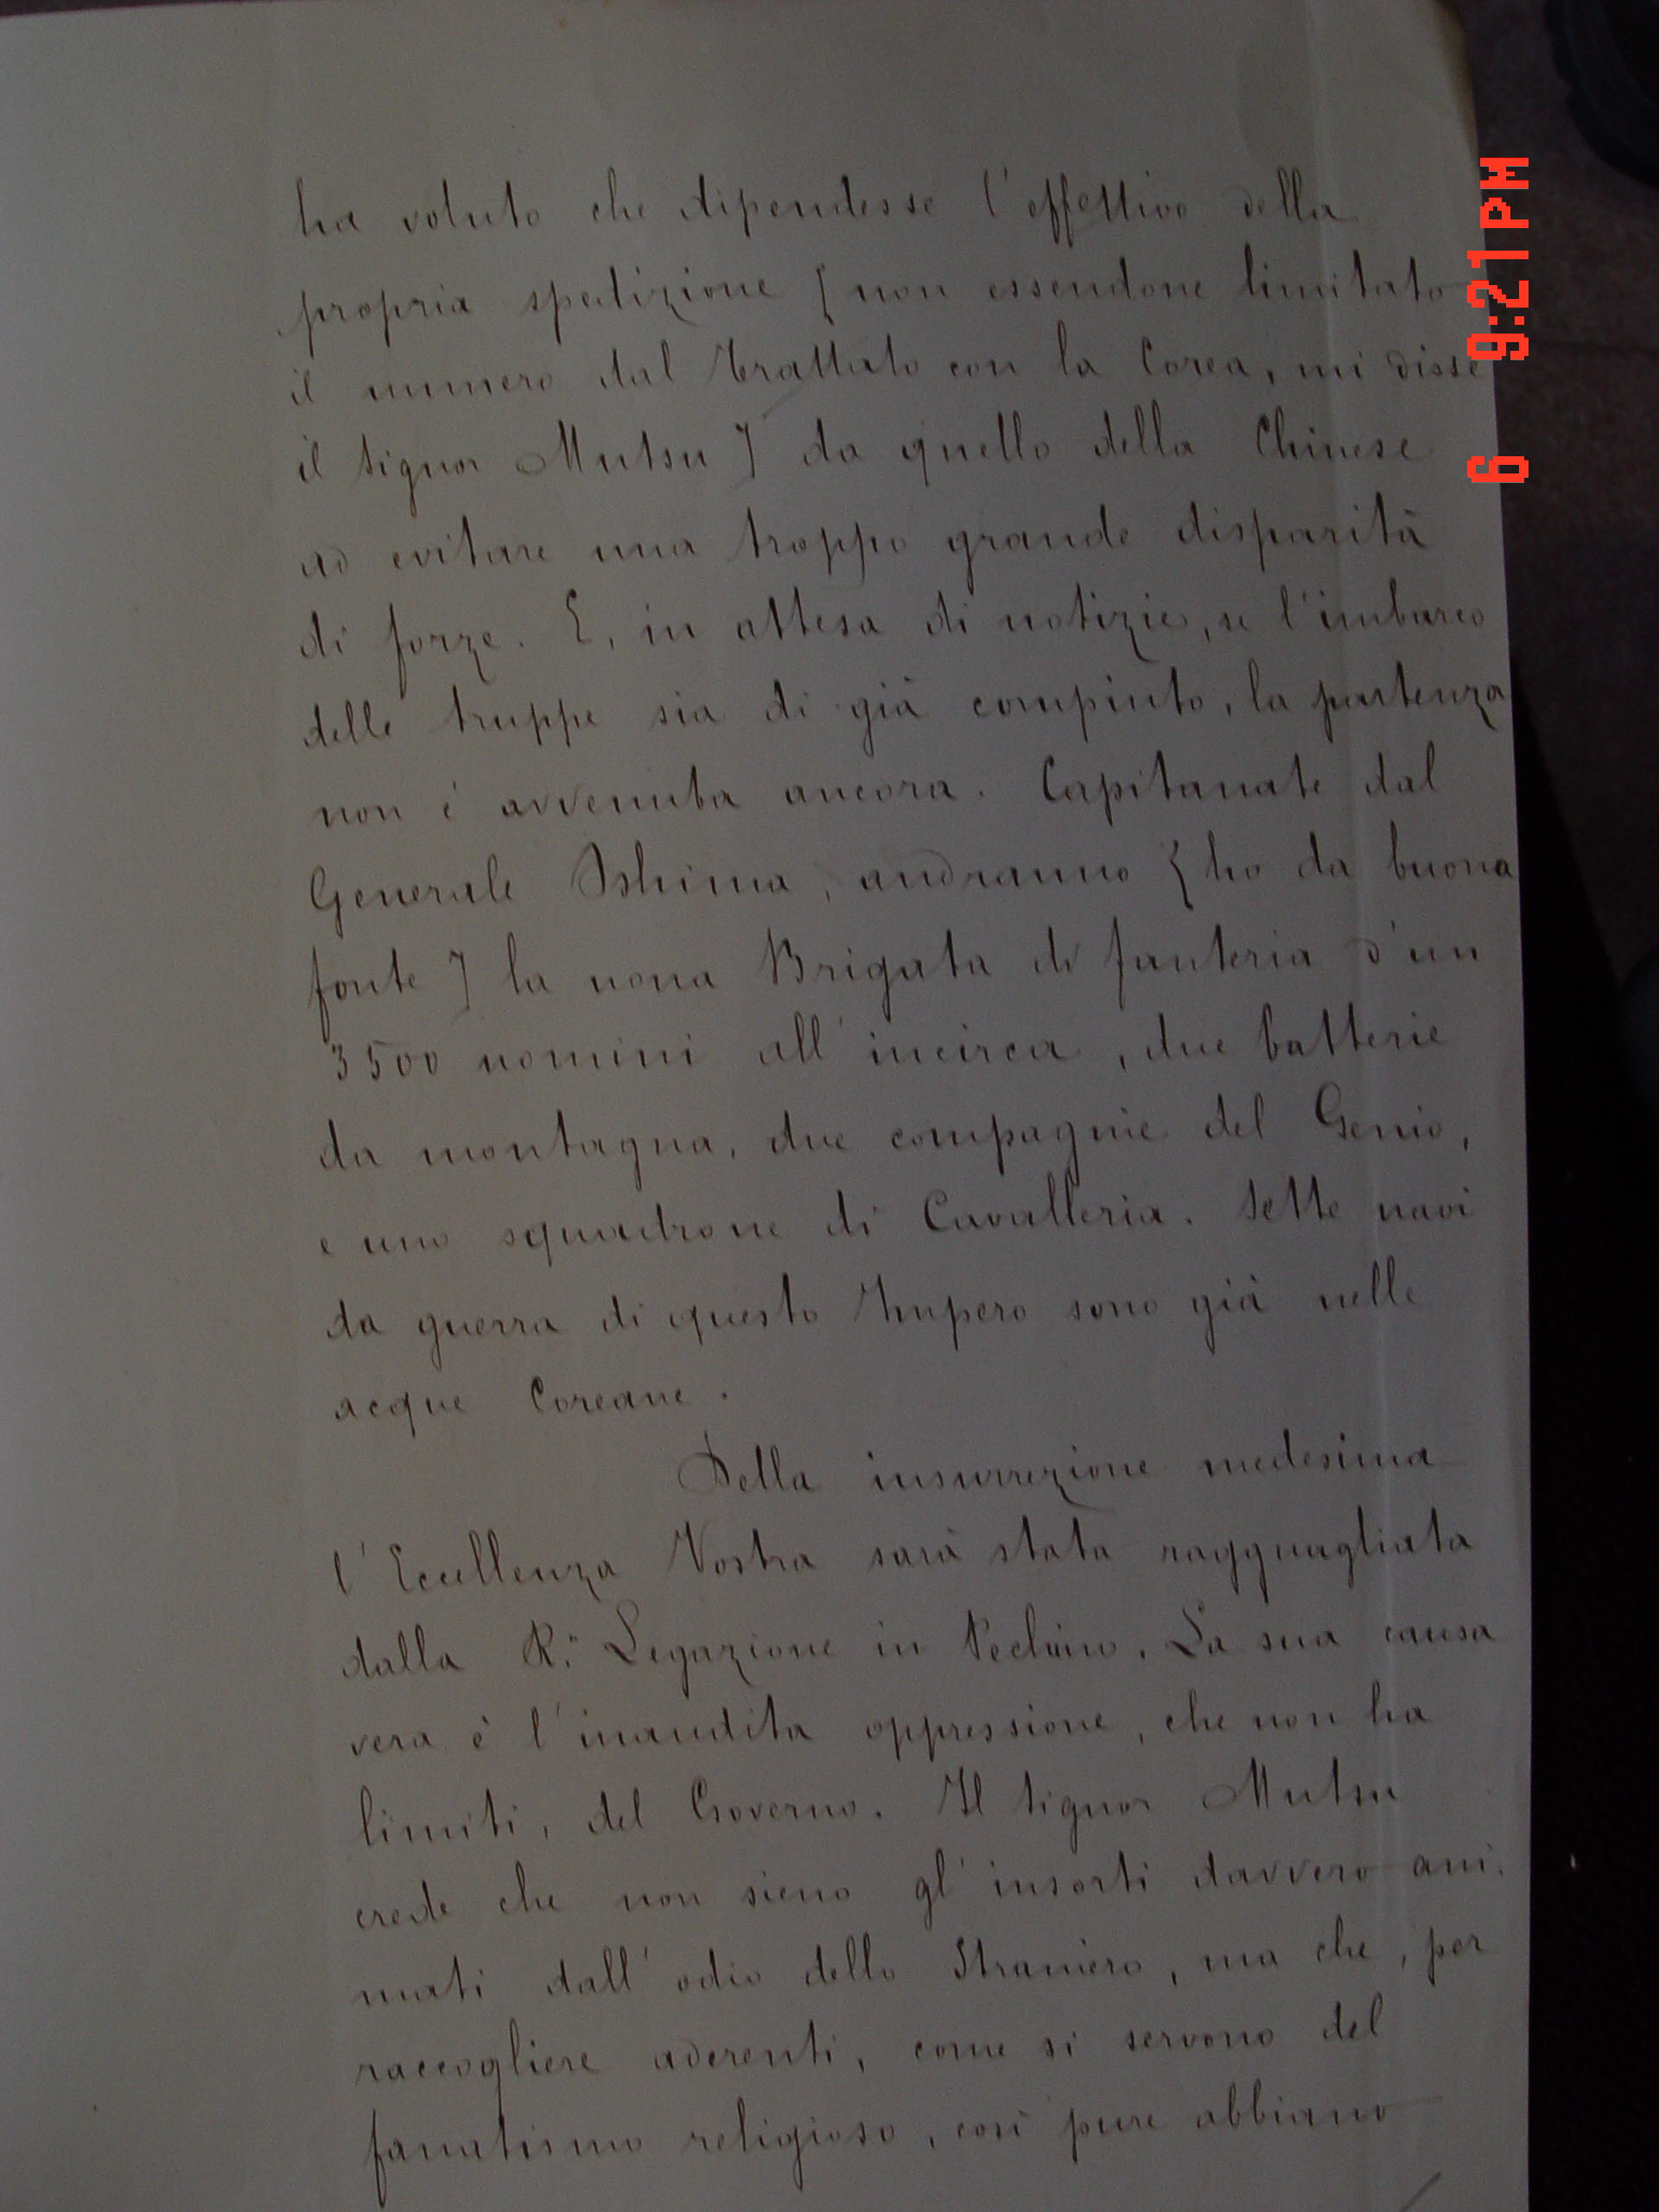 ha voluto che dipendesse l'effettivo della
propria spedizione [non essendone limitato
il numero dal trattato con la Corea, mi disse
il signor Mutsu] da quello della Chinese
ad evitare una troppo grande disparità
di forze. E, in attesa di notizie, se l'imbarco
delle truppe sia di già compiuto, la partenza
non è avvenuta ancora. Capitanate dal
Generale Oshima, andranno [ho da buona
fonte] la nona Brigata di fanteria d'un
3500 uomini all'incirca, due batterie
da montagna, due compagnie del Genio,
e uno squadrone di Cavalleria. Sette navi
da guerra di questo Impero sono già nelle
acque Coreane.
Della insurrezione medesima
l'Eccellenza Vostra sarà stata ragguagliata
dalla R.ª Legazione in Pechino. La sua causa
vera è l'inaudita oppressione, che non ha
limiti, del Governo. Il signor Mutsu
crede che non sieno gl'insorti davvero ani-
mati dall'odio dello Straniero, ma che, per
raccogliere aderenti, come si servono del
fanatismo religioso, così pure abbiano
6 9:21PM